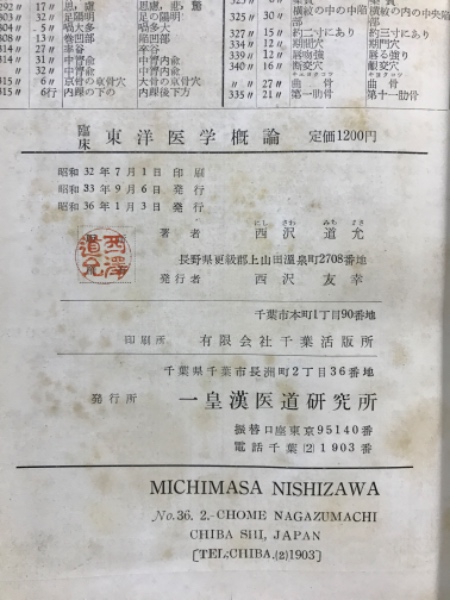 292 〃 17 〃 思，慮 思慮，悲，驚
303 〃 32 〃 足陽明 足の陽明
304 〃 5 〃 喘大多 喘多大
308 〃 13 〃
314 〃 27 〃 率谷
314 〃 31 〃
〃 32 〃
315 〃 6 〃 京骨の童骨穴 大骨の童骨穴
315 〃 6行 内踝の下の 内踝後下方
325 〃
横紋の中の中央陥部 横紋の内の中央陥部
327 〃 15 〃 約二寸にあり 約三寸にあり
334 〃 12 〃 期間穴 期門穴
339 〃 12 〃
340 〃 16 〃
〃 27 〃 曲骨
335 〃 21 〃 第一肋骨 第十一肋骨
臨床 東洋医学概論 定価1200円
昭和32年7月1日印刷
昭和33年9月6日発行
昭和36年1月3日発行
にし さわ みち まさ
著者 西沢道允
西澤道允
長野県更級郡上山田温泉町2708番地
発行者 西沢友幸
千葉市本町1丁目90番地
印刷所 有限会社千葉活版所
千葉県千葉市長洲町2丁目36番地
発行所 一皇漢医道研究所
振替口座東京95140番
電話千葉(2)1903番
MICHIMASA NISHIZAWA
No.36. 2.-CHOME NAGAZUMACHI
CHIBA SHI, JAPAN
〔TEL;CHIBA.(2)1903〕